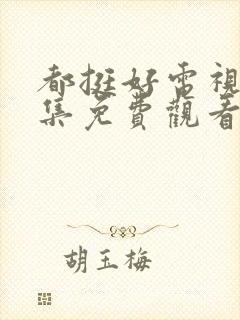 都挺好電視
集免費觀看
胡玉梅